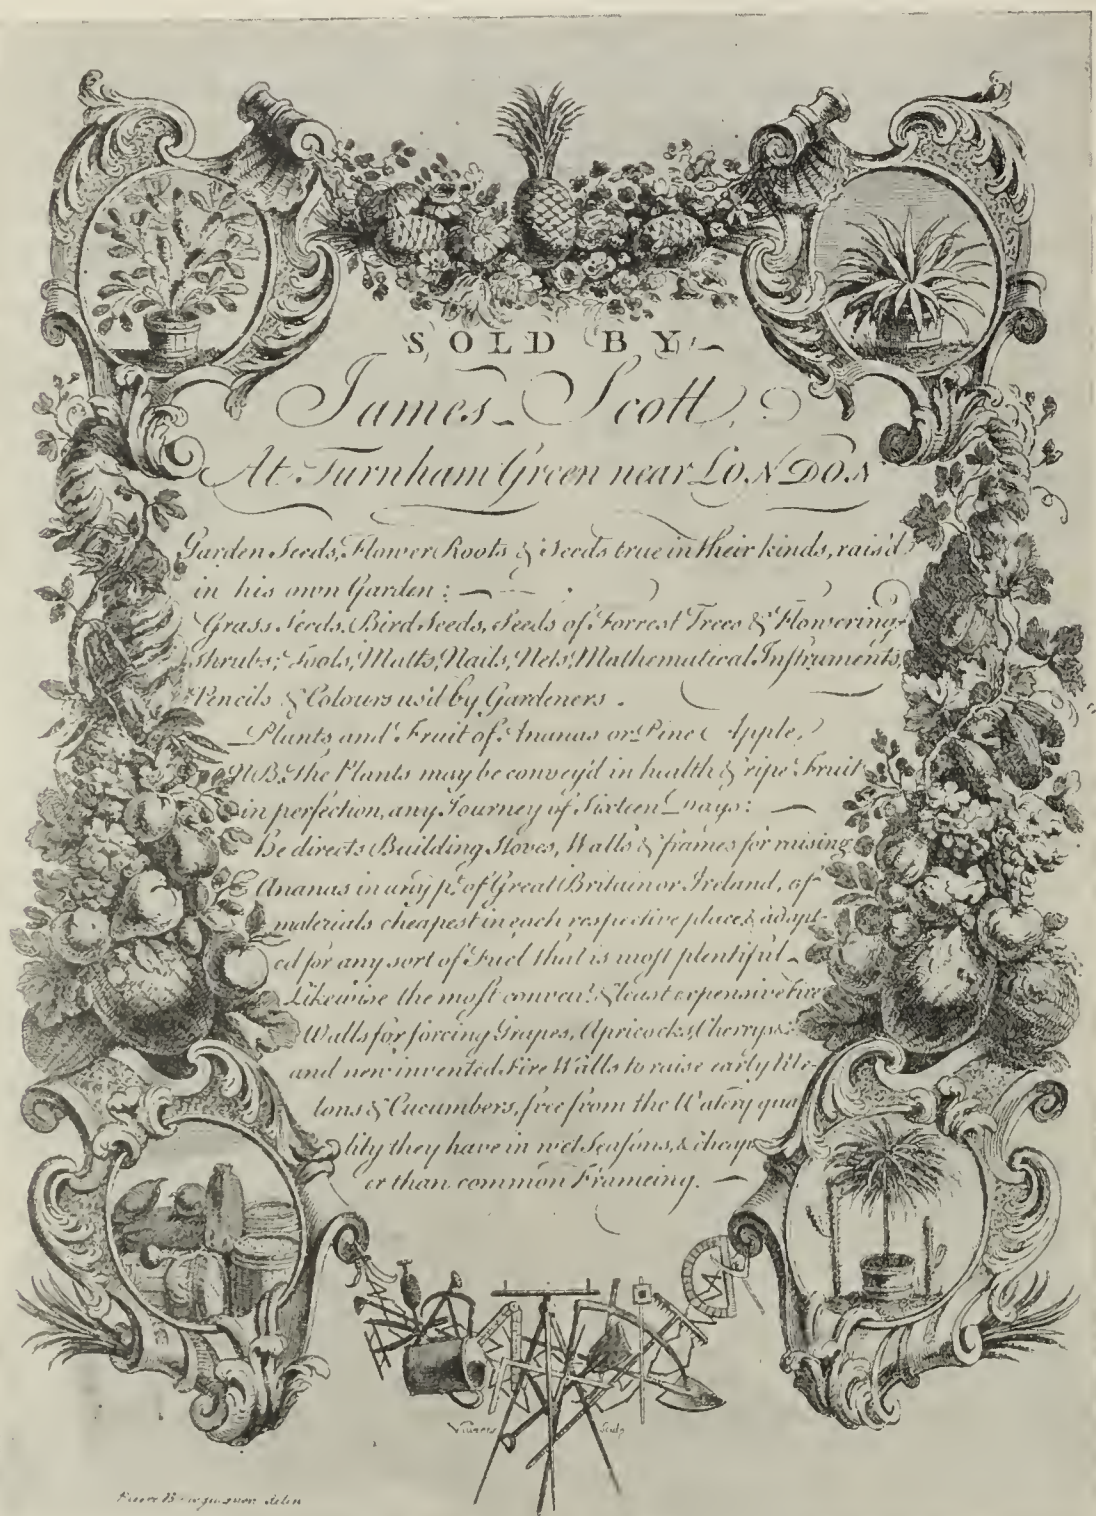 SOLD BY
James Scott,
At Turnham Green near LONDON
Garden Seeds, Flower Roots & Seeds true in their kinds, rais'd
in his own Garden:
Grass Seeds, Bird Seeds, Seeds of Forrest Trees & Flowering
Shrubs; Tools, Matts, Nails, Nets, Mathematical Instruments,
Pencils & Colours us'd by Gardeners.
Plants and Fruit of Ananas or Pine Apple,
NB. the Plants may be convey'd in health & ripe Fruit
in perfection, any Journey of Sixteen Days:
He directs Building Stoves, Walls & frames for raising
Ananas in any pt. of Great Britain or Ireland, of
materials cheapest in each respective place & adapt-
ed for any sort of Fuel that is most plentiful
Likewise the most & least expensive Fire
Walls for forcing Grapes, Apricocks, Cherrys &c
and new invented Fire Walls to raise early Me-
lons & Cucumbers, free from the Watery qua
lity they have in wet Seasons, & cheap
er than common Frameing.
Vivares Sculp
delin